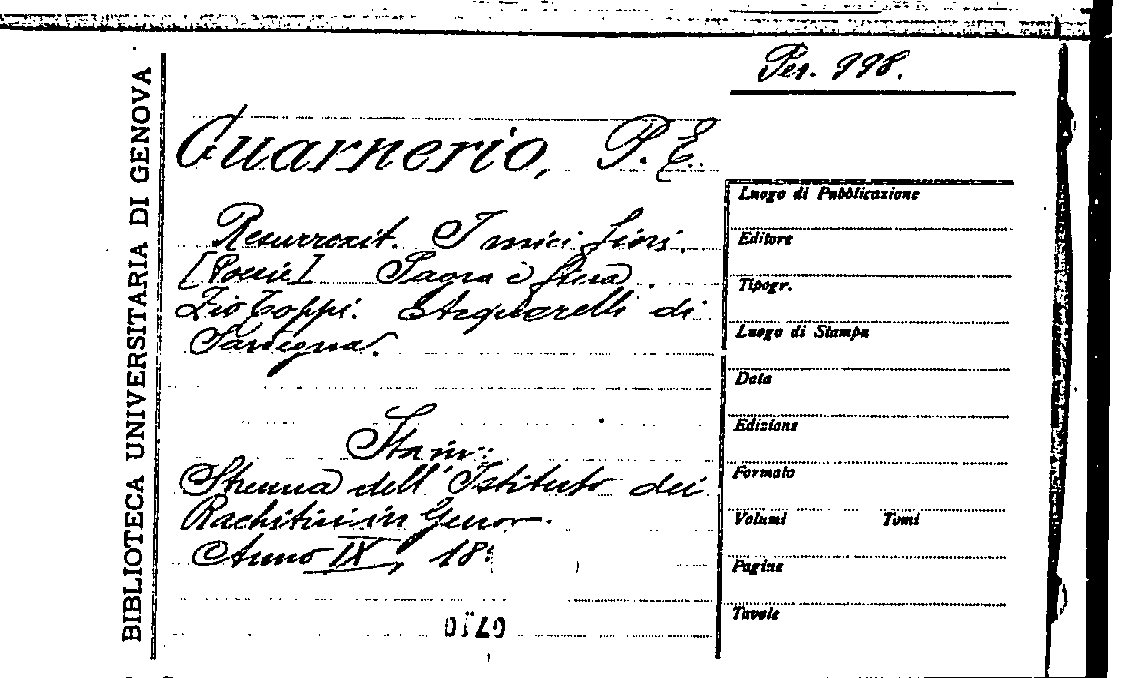 Per. 998.
BIBLIOTECA UNIVERSITARIA DI GENOVA
Guarnerio, P. E.
Resurrexit. I miei fiori.
[Poesie] Pagra e fiera.
Zio Coppi. Acquerelli di
Sardegna.
Sta in:
Strenna dell'Istituto dei
Rachitici in Genova.
Anno IX, 18
Luogo di Pubblicazione
Editore
Tipogr.
Luogo di Stampa
Data
Edizione
Formato
Volumi Tomi
Pagine
Tavole